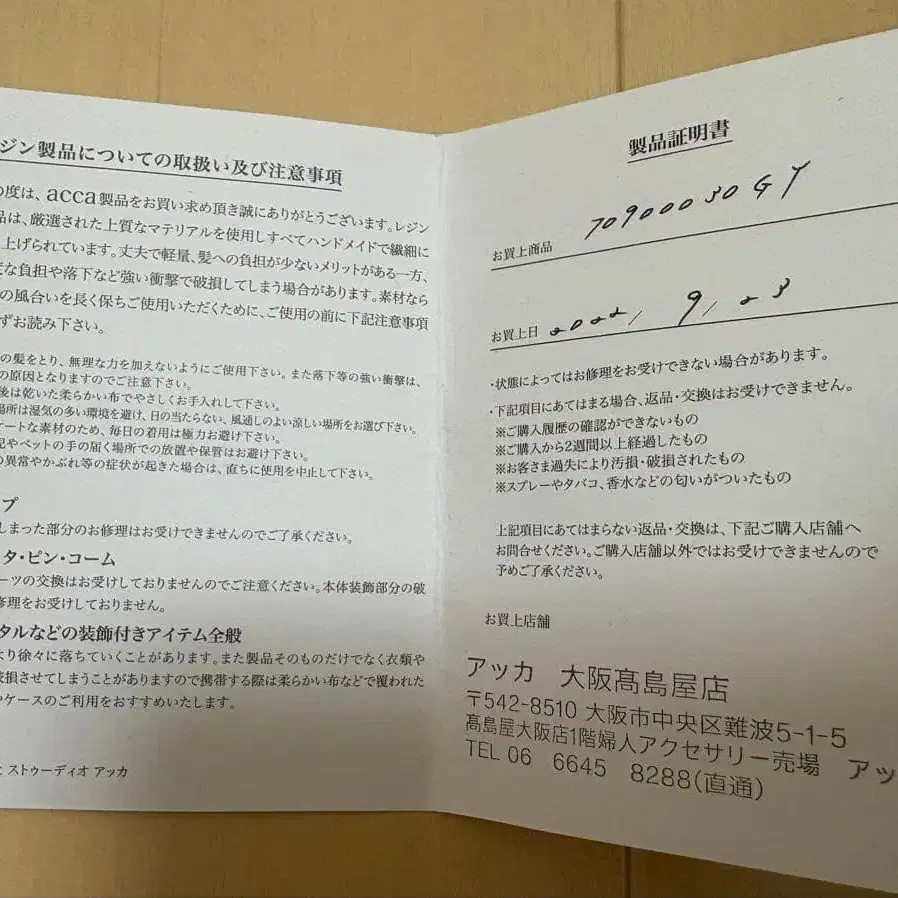 ジン製品についての取扱い及び注意事項
の度は、acca製品をお買い求め頂き誠にありがとうございます。レジン
品は、厳選された上質なマテリアルを使用しすべてハンドメイドで繊細に
上げられています。丈夫で軽量、髪への負担が少ないメリットがある一方、
度な負担や落下など強い衝撃で破損してしまう場合があります。素材なら
の風合いを長く保ちご使用いただくために、ご使用の前に下記注意事項
ずお読み下さい。
の髪をとり、無理な力を加えないようにご使用下さい。また落下等の強い衝撃は、
の原因となりますのでご注意下さい。
後は乾いた柔らかい布でやさしくお手入れして下さい。
場所は湿気の多い環境を避け、日の当たらない、風通しのよい涼しい場所をお選び下さい。
ケートな素材のため、毎日の着用は極力お避け下さい。
やペットの手の届く場所での放置や保管はお避け下さい。
の異常やかぶれ等の症状が起きた場合は、直ちに使用を中止して下さい。
プ
しまった部分のお修理はお受けできませんのでご了承ください。
タ・ピン・コーム
ーツの交換はお受けしておりませんのでご注意ください。本体装飾部分の破
修理をお受けしておりません。
タルなどの装飾付きアイテム全般
より徐々に落ちていくことがあります。また製品そのものだけでなく衣類や
破損させてしまうことがありますので携帯する際は柔らかい布などで覆われた
やケースのご利用をおすすめいたします。
ストゥーディオ アッカ
製品証明書
お買上商品 70900030GY
お買上日 2022, 9, 23
・状態によってはお修理をお受けできない場合があります。
・下記項目にあてはまる場合、返品・交換はお受けできません。
※ご購入履歴の確認ができないもの
※ご購入から2週間以上経過したもの
※お客さま過失により汚損・破損されたもの
※スプレーやタバコ、香水などの匂いがついたもの
上記項目にあてはまらない返品・交換は、下記ご購入店舗へ
お問合せください。ご購入店舗以外ではお受けできませんので
予めご了承ください。
お買上店舗
アッカ 大阪髙島屋店
〒542-8510 大阪市中央区難波5-1-5
髙島屋大阪店1階婦人アクセサリー売場 アッ
TEL 06 6645 8288(直通)